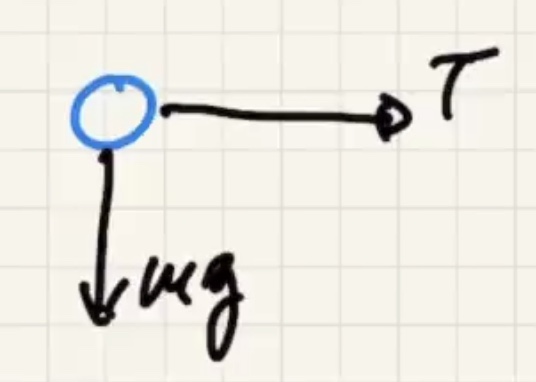 T
mg